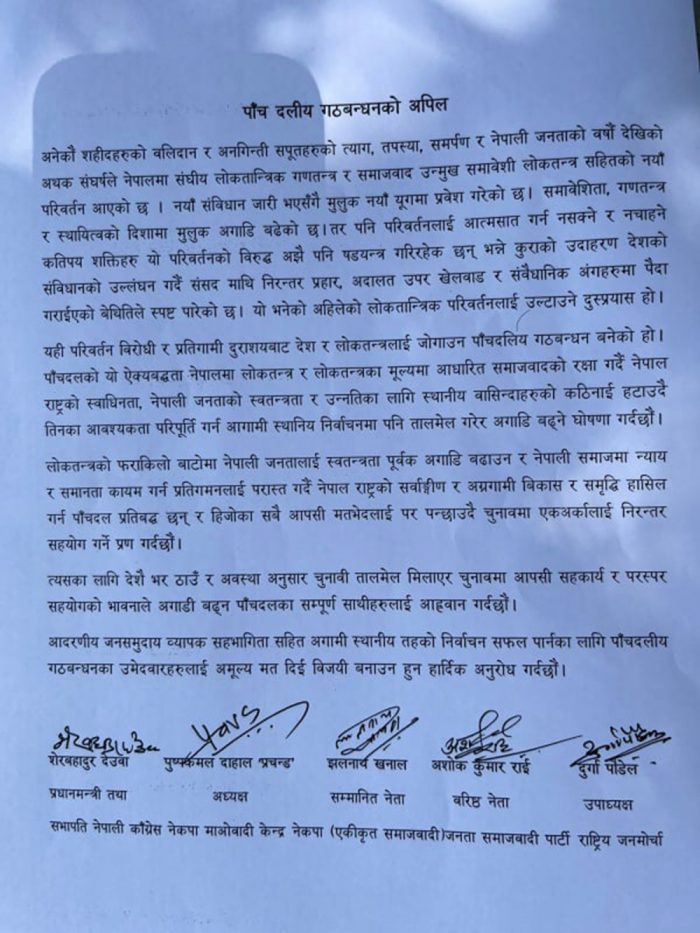 पाँच दलीय गठबन्धनको अपिल
अनेकौं शहीदहरुको बलिदान र अनगिन्ती सपूतहरुको त्याग, तपस्या, समर्पण र नेपाली जनताको वर्षौं देखिको
अथक संघर्षले नेपालमा संघीय लोकतान्त्रिक गणतन्त्र र समाजवाद उन्मुख समावेशी लोकतन्त्र सहितको नयाँ
परिवर्तन आएको छ । नयाँ संविधान जारी भएसँगै मुलुक नयाँ यूगमा प्रवेश गरेको छ। समावेशिता, गणतन्त्र
र स्थायित्वको दिशामा मुलुक अगाडि बढेको छ।तर पनि परिवर्तनलाई आत्मसात गर्न नसक्ने र नचाहने
कतिपय शक्तिहरु यो परिवर्तनको विरुद्ध अझै पनि षडयन्त्र गरिरहेक छन् भन्ने कुराको उदाहरण देशको
संविधानको उल्लंघन गर्दै संसद माथि निरन्तर प्रहार, अदालत उपर खेलवाड र संवैधानिक अंगहरुमा पैदा
गराईएको बेथितिले स्पष्ट पारेको छ। यो भनेको अहिलेको लोकतान्त्रिक परिवर्तनलाई उल्टाउने दुस्प्रयास हो।
यही परिवर्तन बिरोधी र प्रतिगामी दुराशयबाट देश र लोकतन्त्रलाई जोगाउन पाँचदलिय गठबन्धन बनेको हो।
पाँचदलको यो ऐक्यबद्धता नेपालमा लोकतन्त्र र लोकतन्त्रका मूल्यमा आधारित समाजवादको रक्षा गर्दै नेपाल
राष्ट्रको स्वाधिनता, नेपाली जनताको स्वतन्त्रता र उन्नतिका लागि स्थानीय वासिन्दाहरुको कठिनाई हटाउदै
तिनका आवश्यकता परिपूर्ति गर्न आगामी स्थानिय निर्वाचनमा पनि तालमेल गरेर अगाडि बढ्ने घोषणा गर्दछौं।
लोकतन्त्रको फराकिलो बाटोमा नेपाली जनतालाई स्वतन्त्रता पूर्वक अगाडि बढाउन र नेपाली समाजमा न्याय
र समानता कायम गर्न प्रतिगमनलाई परास्त गर्दै नेपाल राष्ट्रको सर्वाङ्गीण र अग्रगामी बिकास र समृद्धि हासिल
गर्न पाँचदल प्रतिबद्ध छन् र हिजोका सबै आपसी मतभेदलाई पर पन्छाउदै चुनावमा एकअर्कालाई निरन्तर
सहयोग गर्ने प्रण गर्दछौं।
त्यसका लागि देशै भर ठाउँ र अवस्था अनुसार चुनावी तालमेल मिलाएर चुनावमा आपसी सहकार्य र परस्पर
सहयोगको भावनाले अगाडी बढ्न पाँचदलका सम्पूर्ण साथीहरुलाई आह्रवान गर्दछौं।
आदरणीय जनसमुदाय व्यापक सहभागिता सहित अगामी स्थानीय तहको निर्वाचन सफल पार्नका लागि पाँचदलीय
गठबन्धनका उमेदवारहरुलाई अमूल्य मत दिई विजयी बनाउन हुन हार्दिक अनुरोध गर्दछौं।
शेरबहादुर देउवा पुष्पकमल दाहाल 'प्रचन्ड' झलनाथ खनाल अशोक कुमार राई दुर्गा पौडेल
प्रधानमन्त्री तथा अध्यक्ष सम्मानित नेता बरिष्ठ नेता उपाध्यक्ष
सभापति नेपाली काँग्रेस नेकपा माओवादी केन्द्र नेकपा (एकीकृत समाजबादी)जनता समाजबादी पार्टी राष्ट्रिय जनमोर्चा